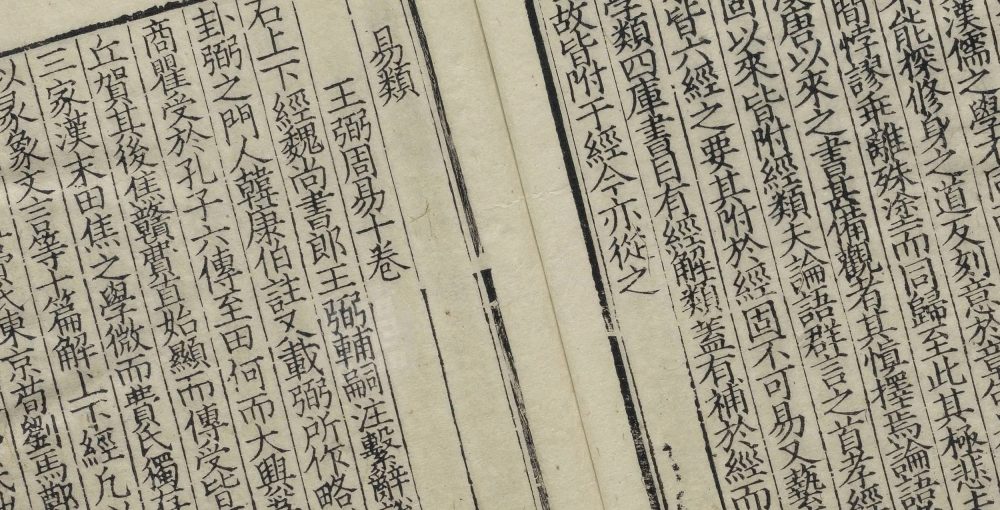 漢儒之學不同
不能探修身之道友刻意於章句
間悖謬乖離殊塗而同歸至此其極悲
唐以來之書甚備觀者其慎擇焉論語
固以來皆附經類夫論語群言之首孝經
皆六經之要其附於經固不可易又藝
學類四庫書目有經解類蓋有補於經而
故皆附于經今亦從之
易類
王弼周易十卷
右上下經魏尚書郎王弼輔嗣注繫辭
卦弼之門人韓康伯註又載弼所作略
商瞿受於孔子六傳至田何而大興為
丘賀其後焦贛費直始顯而傳受皆
三家漢末田焦之學微而費氏獨存
以彖象文言等十篇解上下經凡
費氏東京荀劉馬鄭